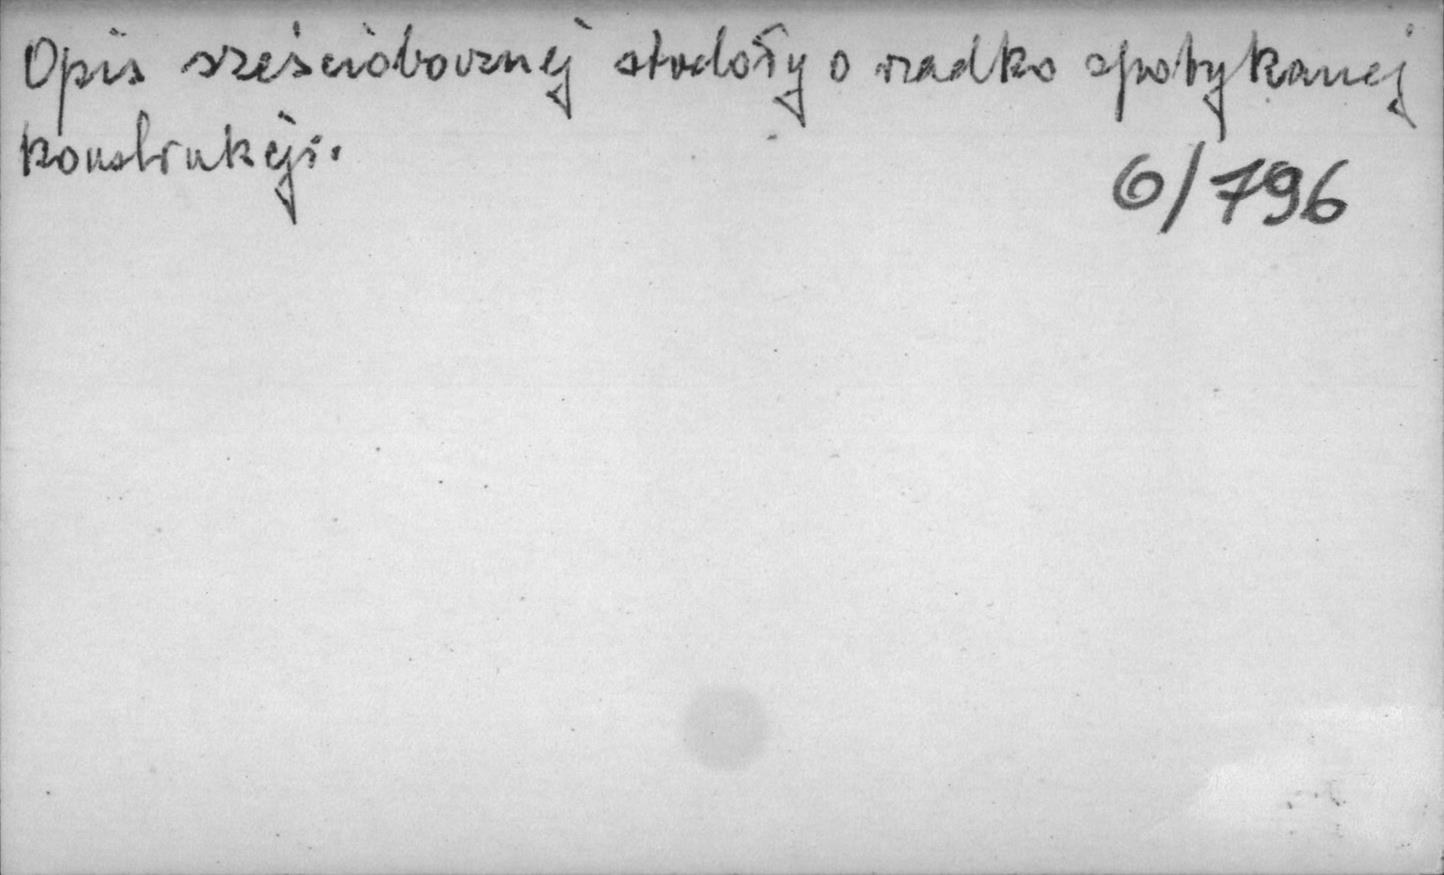 Opis sześciobocznej stodoły o rzadko spotykanej
konstrukcji.
6/796